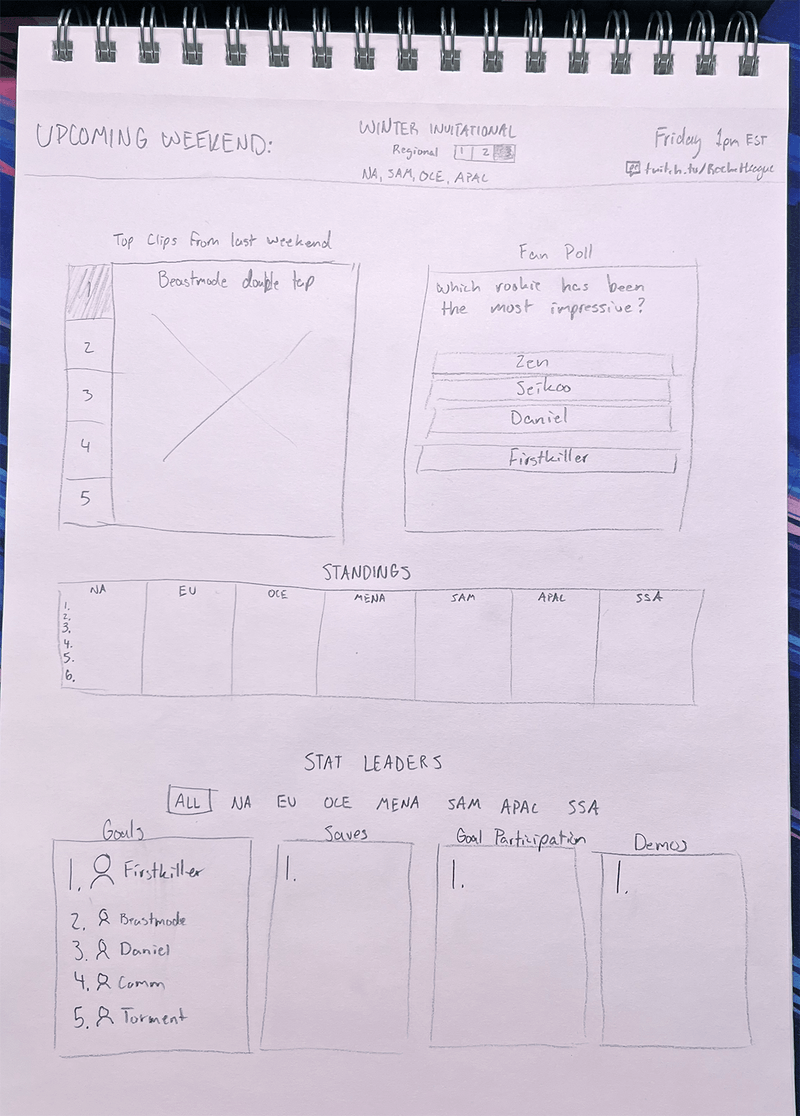 UPCOMING WEEKEND:
WINTER INVITATIONAL
Regional 1 2 3
NA, SAM, OCE, APAC
Friday 1pm EST
twitch.tv/RocketLeague
Top Clips from last weekend
1
2
3
4
5
Beastmode double tap
Fan Poll
Which rookie has been
the most impressive?
Zen
Seikoo
Daniel
Firstkiller
STANDINGS
NA EU OCE MENA SAM APAC SSA
1.
2.
3.
4.
5.
6.
STAT LEADERS
ALL NA EU OCE MENA SAM APAC SSA
Goals Saves Goal Participation Demos
1. Firstkiller
2. Beastmode
3. Daniel
4. Comm
5. Torment
1.
1.
1.